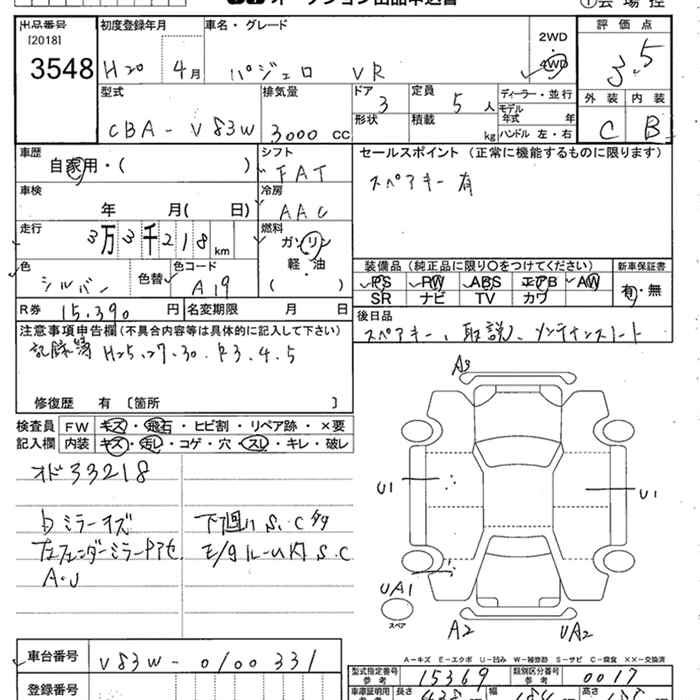 出品番号 初度登録年月 車名・グレード 評価点
[2018] 2WD
3548 H20 4月 パジェロ VR 4WD 3.5
型式 排気量 ドア 定員 ディーラー・並行 外装 内装
CBA-V83W 3000cc 3 5人 モデル年式 年
形状 積載 kg ハンドル 左・右 C B
車歴 シフト セールスポイント (正常に機能するものに限ります)
自家用・( ) FAT スペアキー有
車検 冷房
年 月( 日) AAC
走行 燃料
3万3千218km ガソリン
軽・油
( )
装備品(純正品に限り○をつけてください) 新車保証書
色 色替 色コード PS RW ABS エアB AW 有・無
シルバー A19 SR ナビ TV カワ
R券 15,390円 名変期限 月 日 後日品
注意事項申告欄(不具合内容等は具体的に記入して下さい) スペアキー、取説、メンテナンスノート
記録簿 H25.27.30.R3.4.5
修復歴 有 [箇所 ]
検査員 FW キズ・飛石・ヒビ割・リペア跡・×要
記入欄 内装 キズ・汚レ・コゲ・穴・スレ・キレ・破レ
オド33218
ミラーキズ 下廻り S.C
左フェンダーミラー E/gルーム内 S.C
A.U
A3
U1 U1
UA1
スペア
A2 UA2
A-キズ E-エクボ U-凹み W-補修跡 S-サビ C-腐食 XX-交換済
車台番号 V83W-0100331 型式指定番号 参考 15369 類別区分番号 参考 0017
登録番号 車庫証明用 参考 長さ 幅 高さ